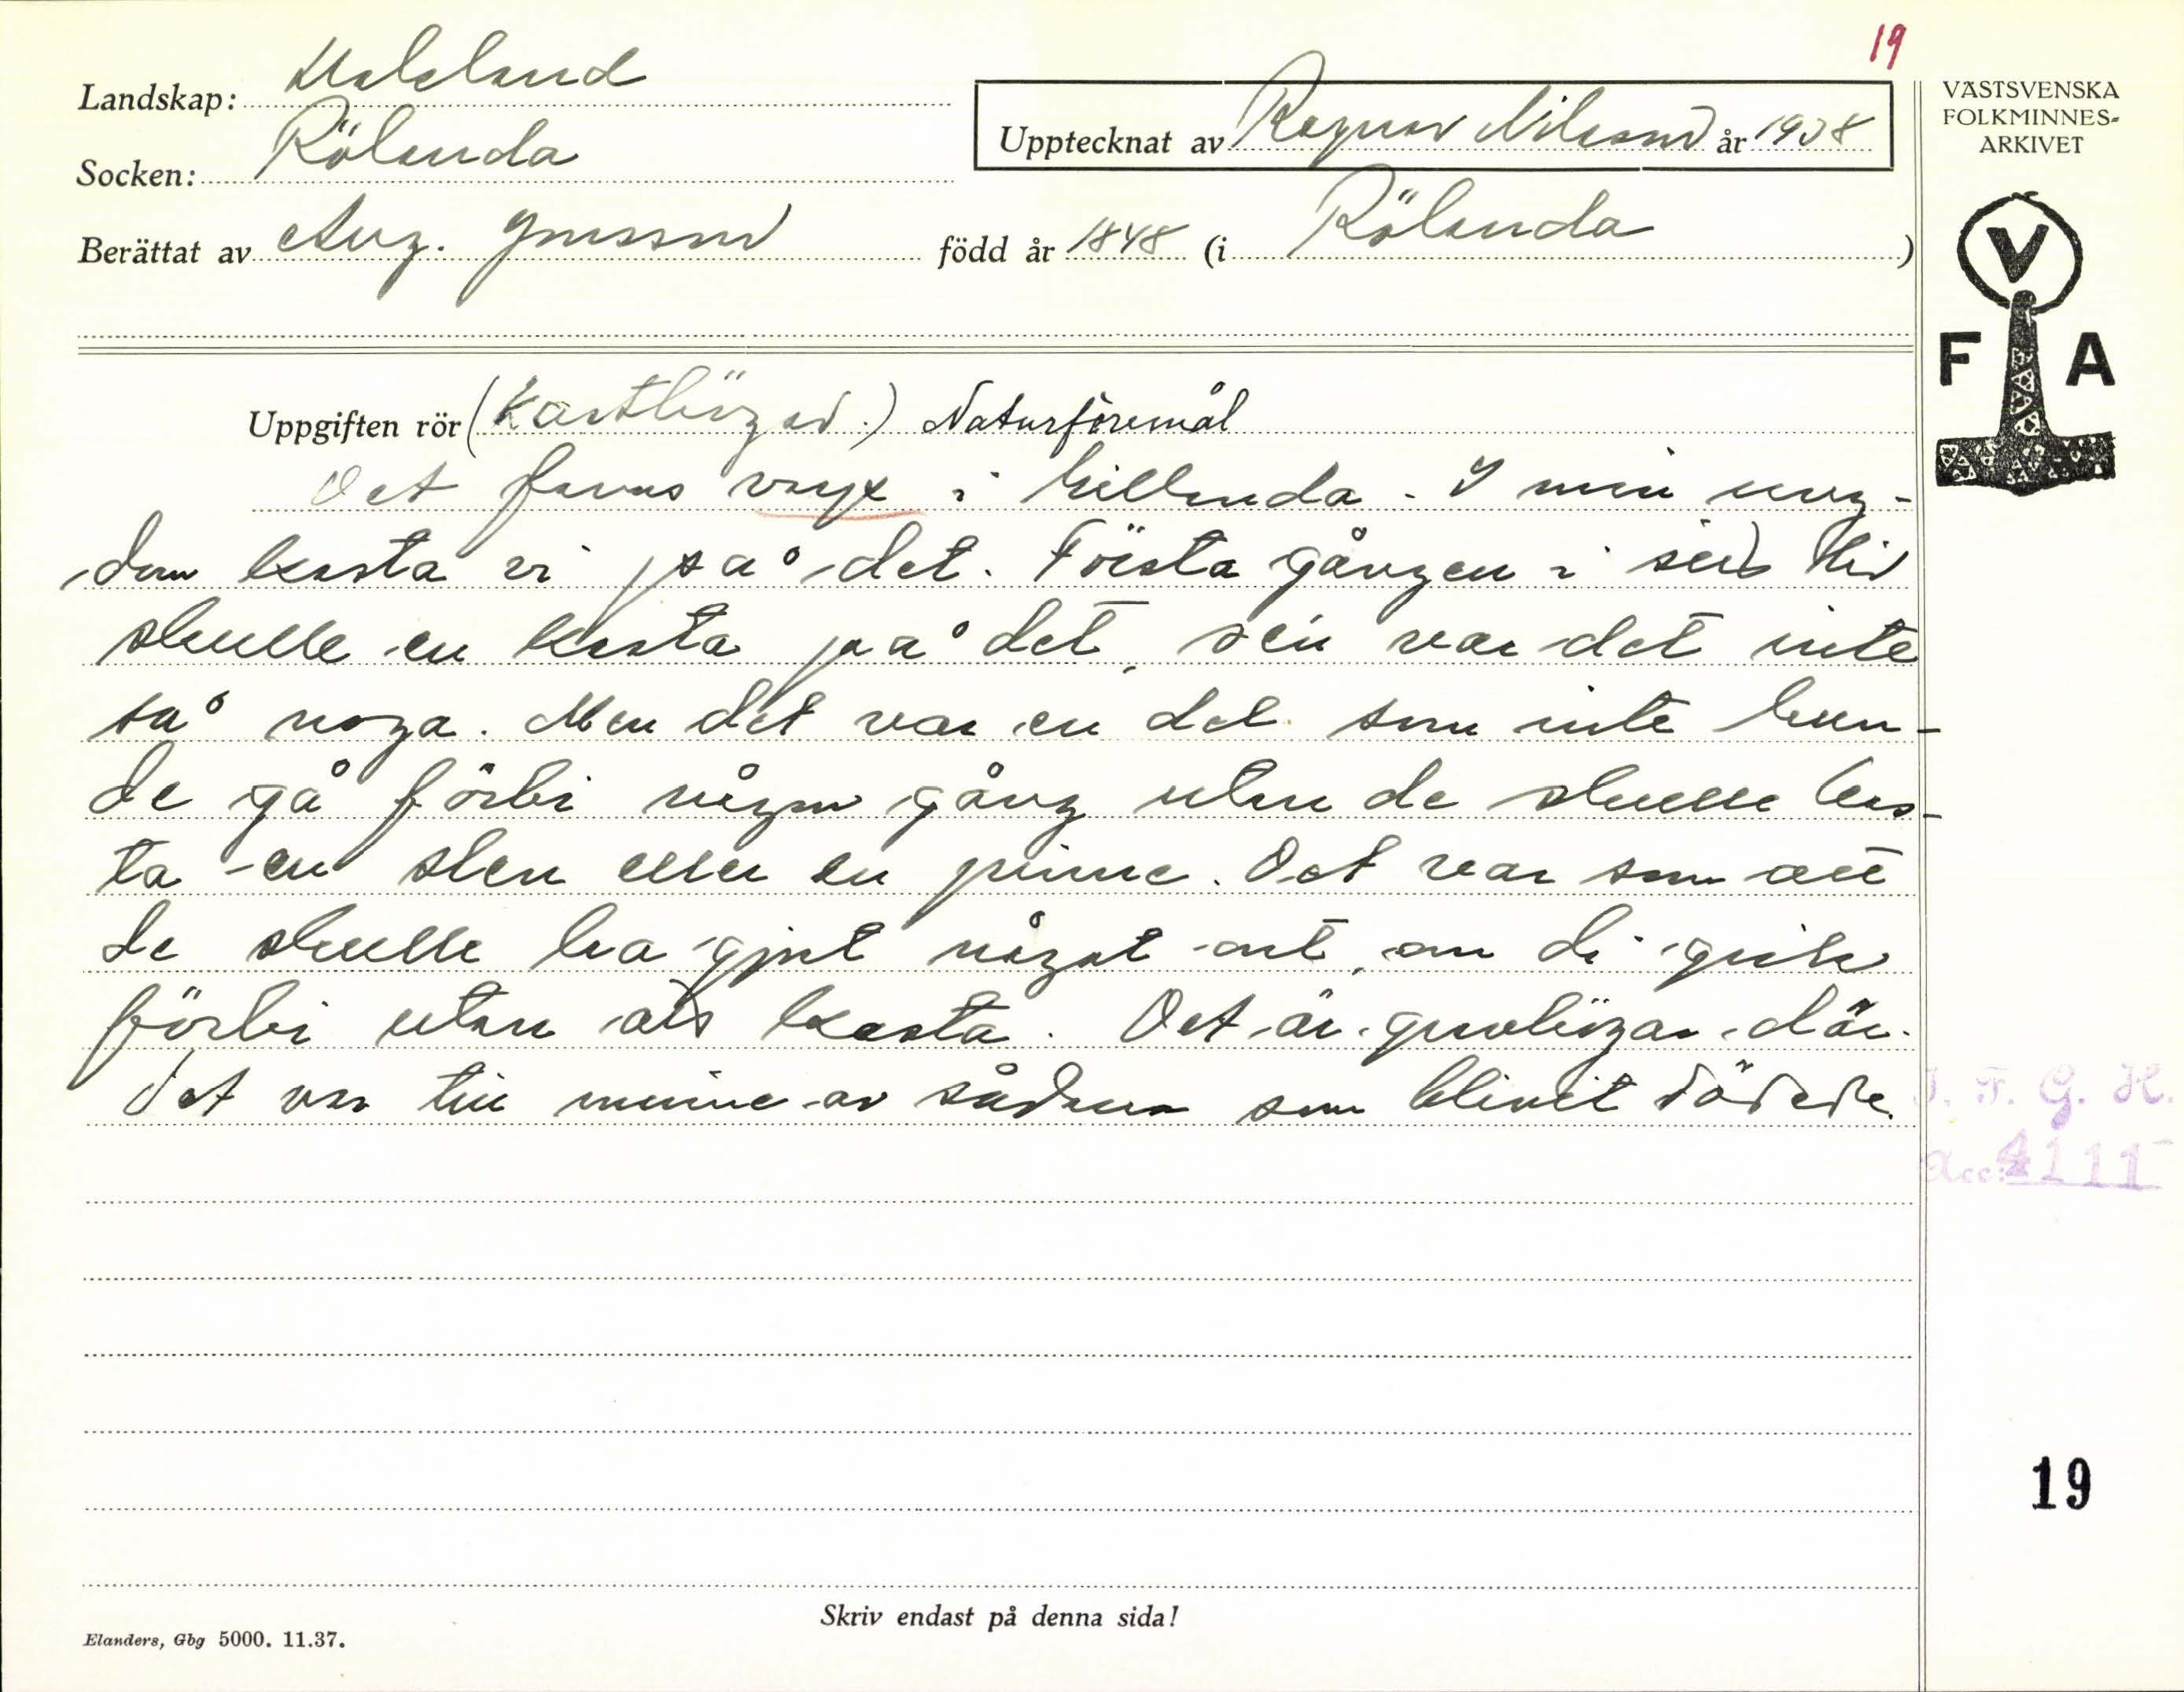 19
Landskap: Dalsland
Socken: Rölanda
Upptecknat av Ragnar Nilsson år 1938
Berättat av Aug. Jonsson född år 1848 (i Rölanda)
VÄSTSVENSKA
FOLKMINNES-
ARKIVET
V
F A
Uppgiften rör (Kasthögar.) Naturföremål
Det fanns i Hillinda. I min ung-
dom kasta vi på det. Första gången i sitt liv
skulle en kasta på det, sen var det inte
så noga. Men det var en del som inte kun-
de gå förbi någon gång utan de skulle kas-
ta en sten eller en pinne. Det var som att
de skulle ha gjort något ont, om di gick
förbi utan att kasta. Det är gravhögar där.
Det var till minne av sådana som blivit dödade.
I. F. G. H.
Acc. 4111
19
Skriv endast på denna sida!
Elanders, Gbg 5000. 11.37.